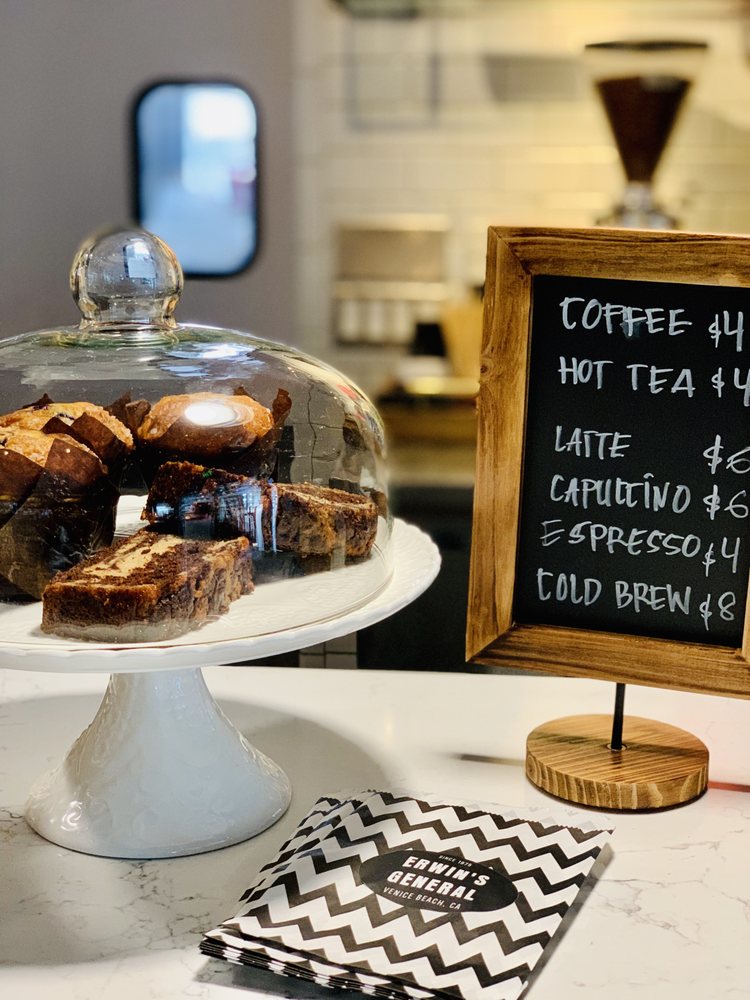 COFFEE $4
HOT TEA $4
LATTE $6
CAPUCCINO $6
ESPRESSO $4
COLD BREW $8
SINCE 1978
ERWIN'S
GENERAL
VENICE BEACH, CA